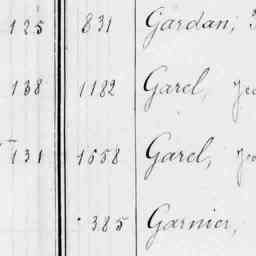 125 831 Gardan,
138 1182 Garel,
131 1558 Garel,
385 Garnier,